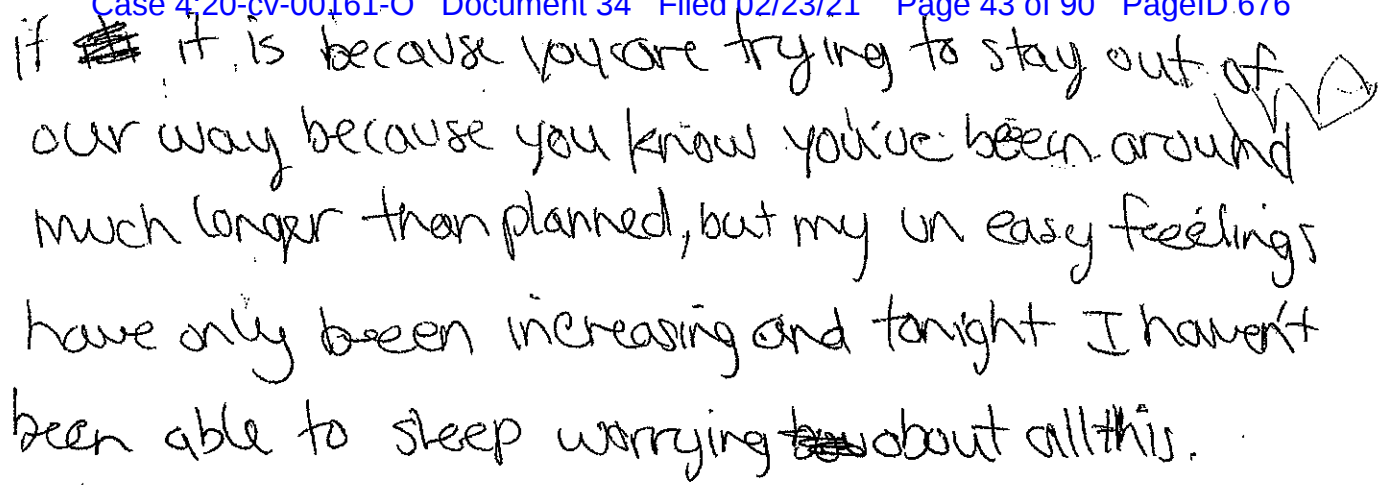 Case 4:20-cv-00161-O Document 34 Filed 02/23/21 Page 43 of 90 PageID 676
if it is because you are trying to stay out of
our way because you know you've been around
much longer than planned, but my un easy feeelings
have only been increasing and tonight I haven't
been able to sleep worrying about all this.